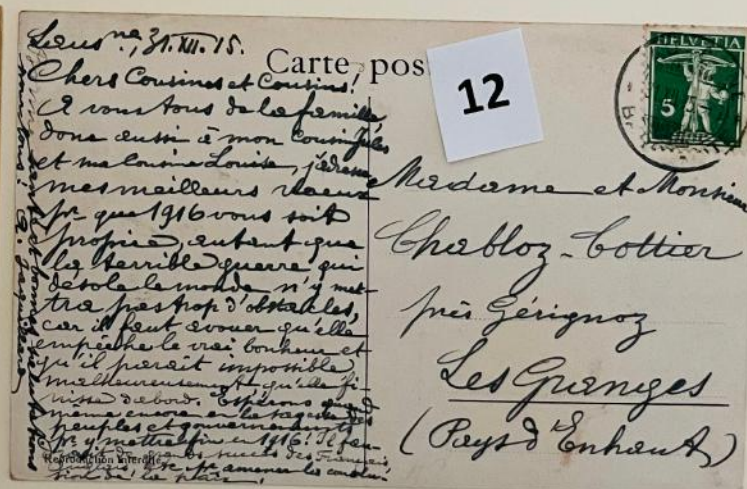 Laus.ne, 31.XII.15.
Chers Cousines et Cousins!
A vous tous de la famille,
donc aussi à mon cousin Jules
et ma cousine Louise, j'adresse
mes meilleurs voeux
pr. que 1916 vous soit
propice, autant que
la terrible guerre qui
désole le monde n'y met-
tra pas trop d'obstacles,
car il faut avouer qu'elle
empêche le vrai bonheur et
qu'il parait impossible,
malheureusement qu'elle fi-
nisse d'abord. Espérons quand
même encore en la sagesse des
peuples et gouvernements
pr. y mettre fin en 1916! Il fau-
drait de succès des Français,
Anglais, etc. pr. amener la conclu-
sion de la paix!
Carte pos
12
HELVETIA
5
Madame et Monsieur
Chabloz-Cottier
près Gérignoz
Les Granges
(Pays d'Enhaut)
Reproduction interdite